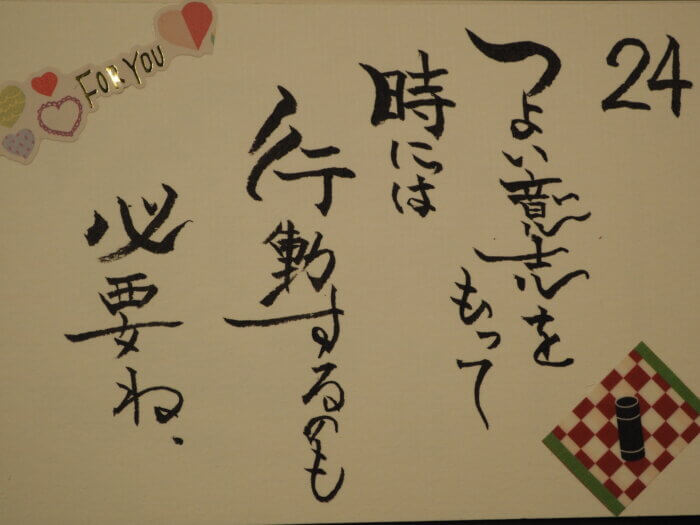 24
つよい意志を
もって
時には
行動するのも
必要ね、
FOR YOU